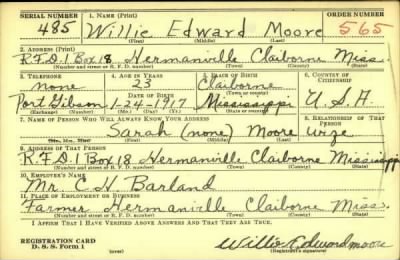 SERIAL NUMBER 1. NAME (Print) ORDER NUMBER
485 Willie Edward Moore 565
(First) (Middle) (Last)
2. ADDRESS (Print)
R.F.D.1 Box 18 Hermanville Claiborne Miss.
(Number and street or R. F. D. number) (Town) (County) (State)
3. TELEPHONE 4. AGE IN YEARS 5. PLACE OF BIRTH 6. COUNTRY OF CITIZENSHIP
none 23 Claiborne
DATE OF BIRTH (Town or county)
Port Gibson 1-24-1917 Mississippi U.S.A.
(Exchange) (Number) (Mo.) (Day) (Yr.) (State or country)
7. NAME OF PERSON WHO WILL ALWAYS KNOW YOUR ADDRESS 8. RELATIONSHIP OF THAT PERSON
Sarah (none) Moore
(Mr., Mrs., Miss) (First) (Middle) (Last)
9. ADDRESS OF THAT PERSON
R.F.D.1 Box 18 Hermanville Claiborne Mississippi
(Number and street or R. F. D. number) (Town) (County) (State)
10. EMPLOYER'S NAME
Mr. C H Barland
11. PLACE OF EMPLOYMENT OR BUSINESS
Farmer Hermanville Claiborne Miss.
(Number and street or R. F. D. number) (Town) (County) (State)
I AFFIRM THAT I HAVE VERIFIED ABOVE ANSWERS AND THAT THEY ARE TRUE.
REGISTRATION CARD
D. S. S. Form 1 (over) Willie Edward moore
(Registrant's signature)